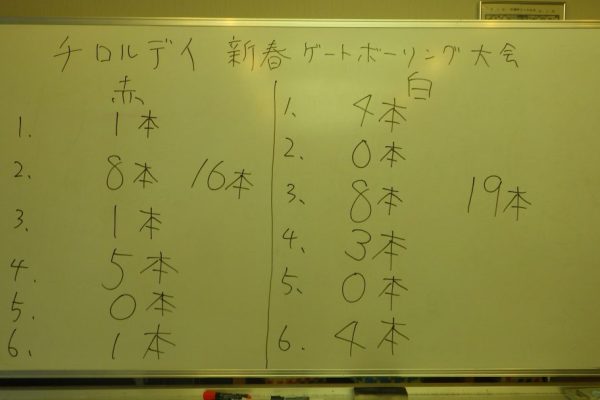 チロルデイ 新春ゲートボーリング大会
赤
1. 1本
2. 8本 16本
3. 1本
4. 5本
5. 0本
6. 1本
白
1. 4本
2. 0本
3. 8本 19本
4. 3本
5. 0本
6. 4本